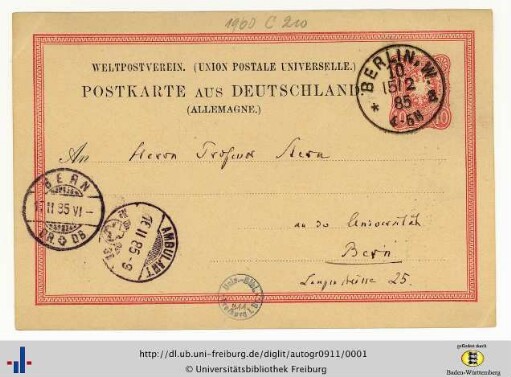 1900 C 210
WELTPOSTVEREIN. (UNION POSTALE UNIVERSELLE.)
POSTKARTE AUS DEUTSCHLAND
(ALLEMAGNE.)
BERLIN, W.
10
15/2
85
An Herrn Professor Stern
BERN
II 85 VI -
AMBULANT
16 II 85 - 9
an der Universität
Bern
25.
http://dl.ub.uni-freiburg.de/diglit/autogr0911/0001
© Universitätsbibliothek Freiburg
gefördert durch
Baden-Württemberg